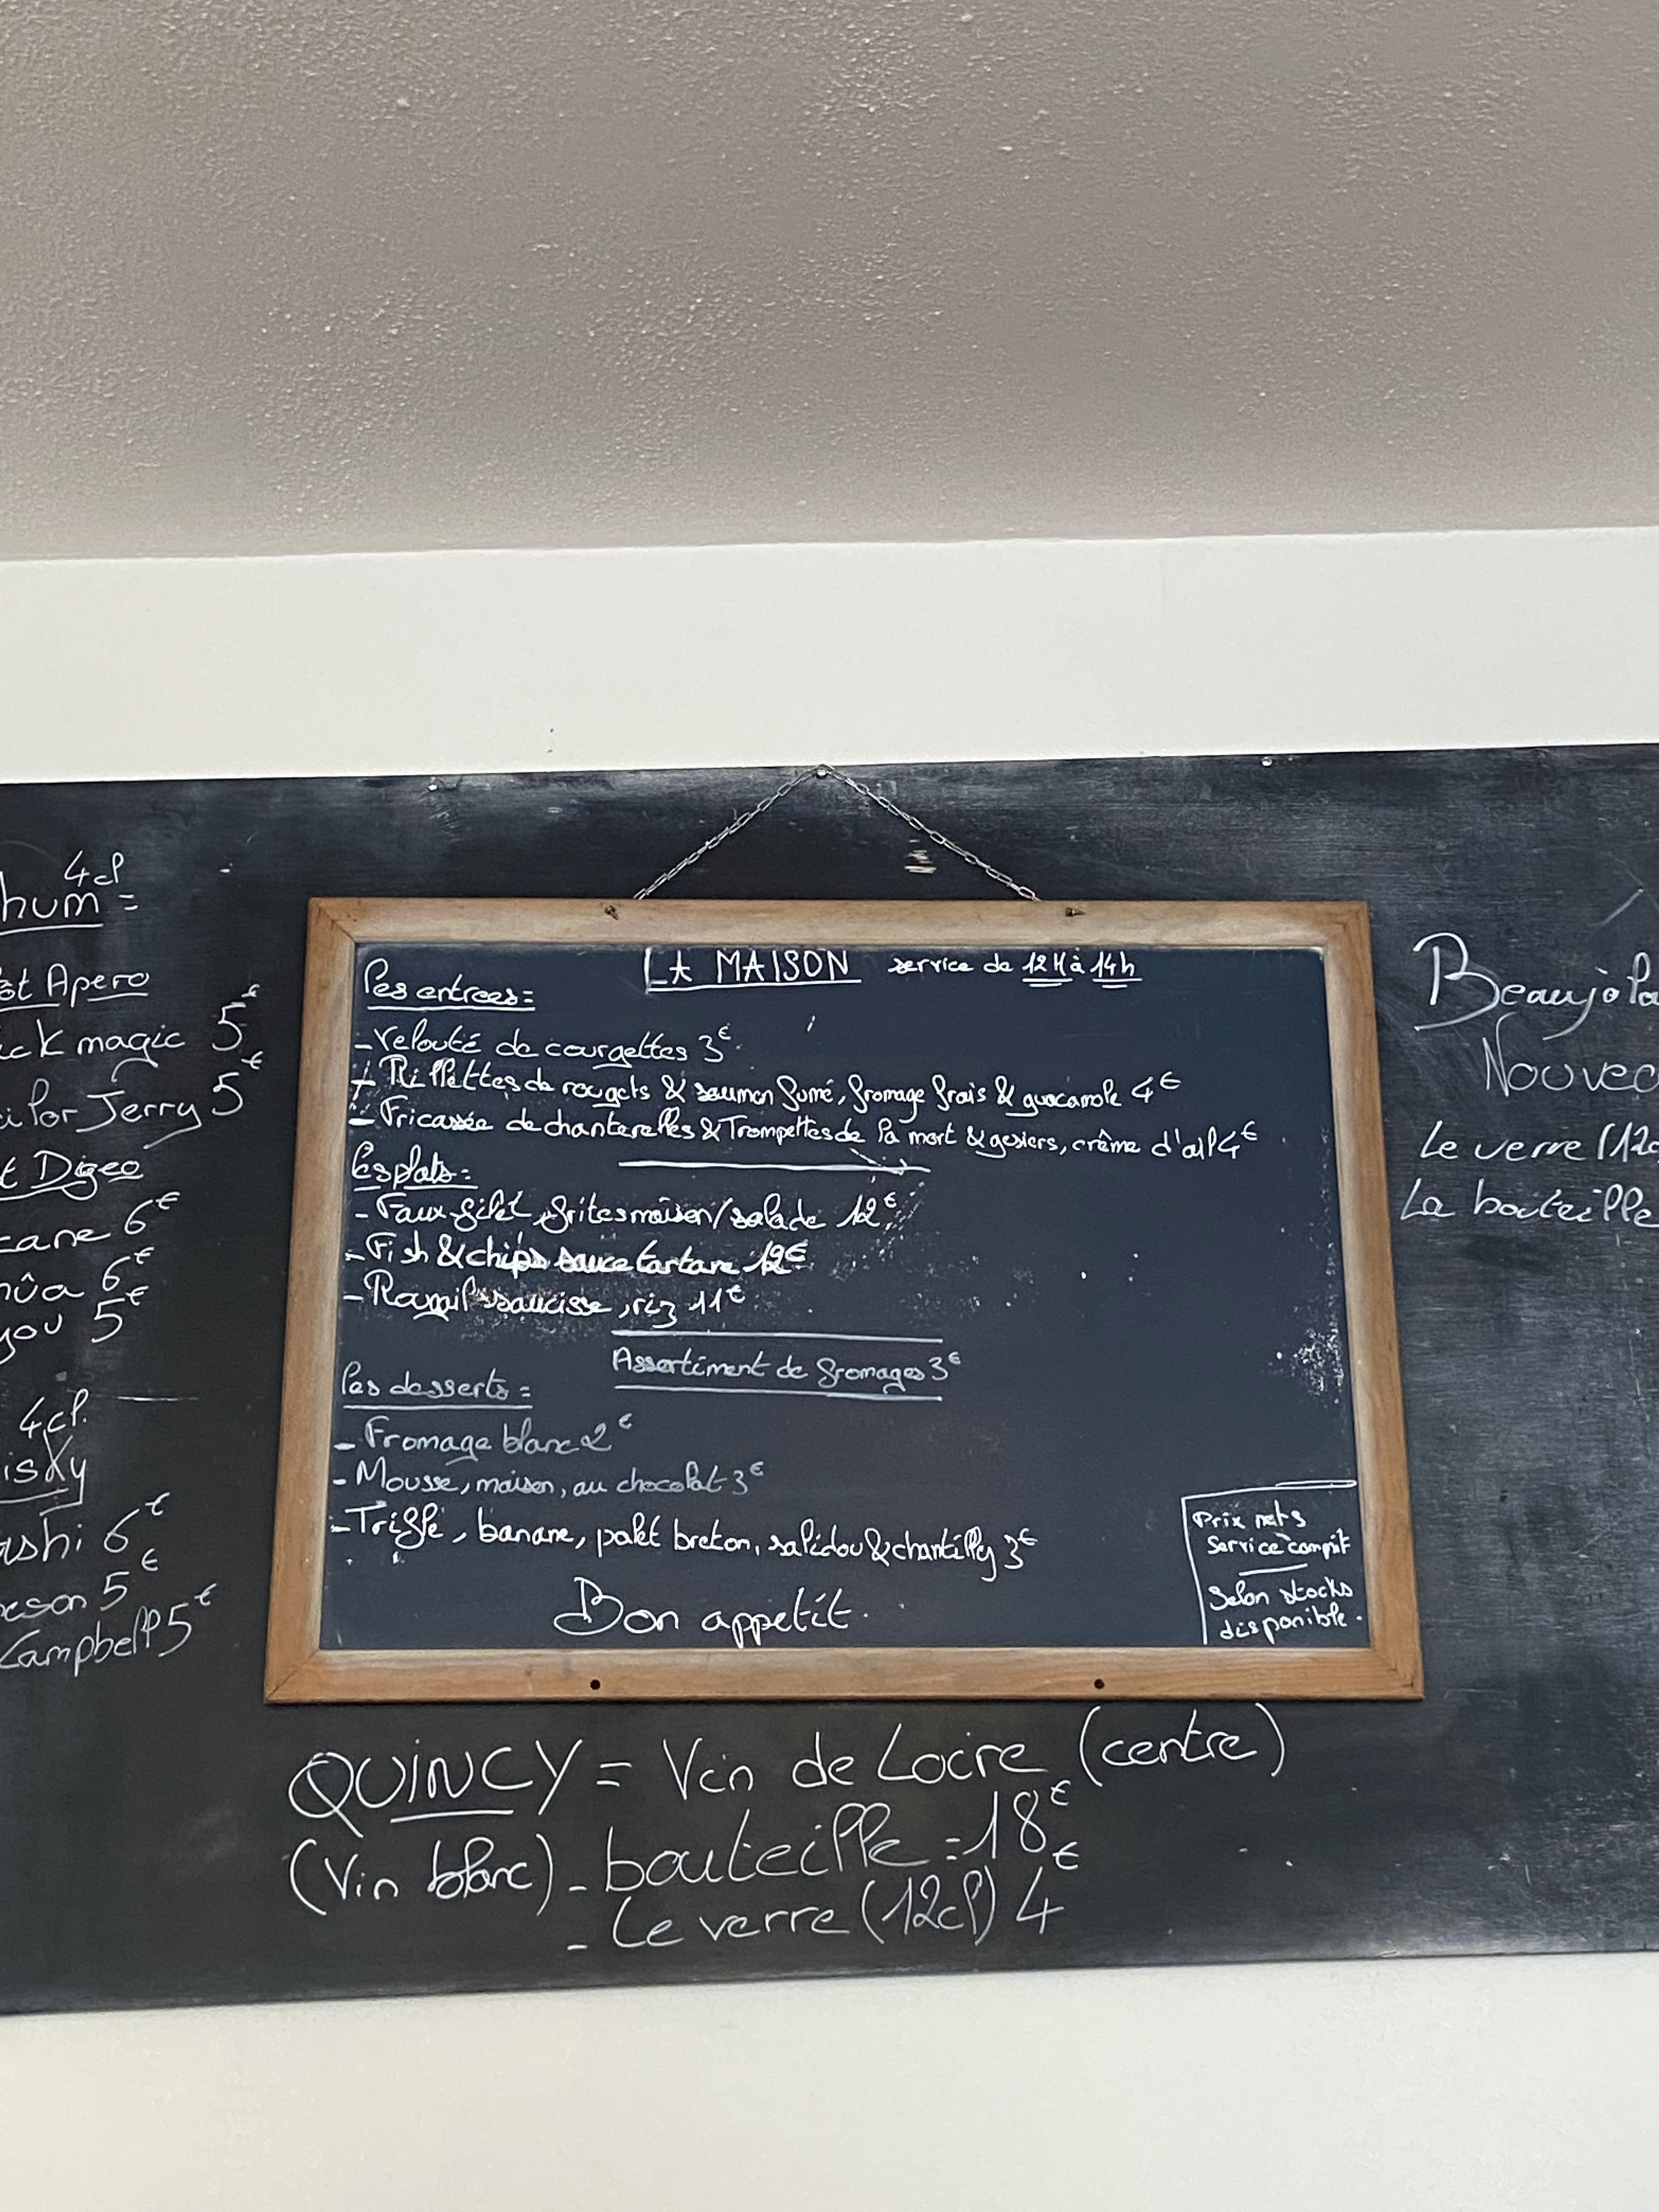 4cl
hum =
ôt Apero
ick magic 5€
Jerry 5€
t Digeo
cane 6€
6€
you 5€
4cl.
isky
ashi 6€
eson 5€
Campbell 5€
LA MAISON service de 12H à 14h
les entrees =
- Velouté de courgettes 3€
- Rillettes de rougets & saumon fumé, fromage frais & guacamole 4€
- Fricassée de chanterelles & Trompettes de la mort & gesiers, crême d'ail 4€
les plats =
- Faux-filet, frites maison/salade 12€
- Fish & chips sauce tartare 12€
- Rougail saucisse, riz 11€
Assortiment de fromages 3€
les desserts =
- Fromage blanc 2€
- Mousse, maison, au chocolat 3€
- Trifle, banane, palet breton, salidou & chantilly 3€
Bon appetit.
Prix nets
Service compris
Selon stocks
disponible.
Beaujola
Nouvea
Le verre (12c
La bouteille
QUINCY = Vin de Loire (centre)
(Vin blanc) - bouteille = 18€
- Le verre (12cl) 4€